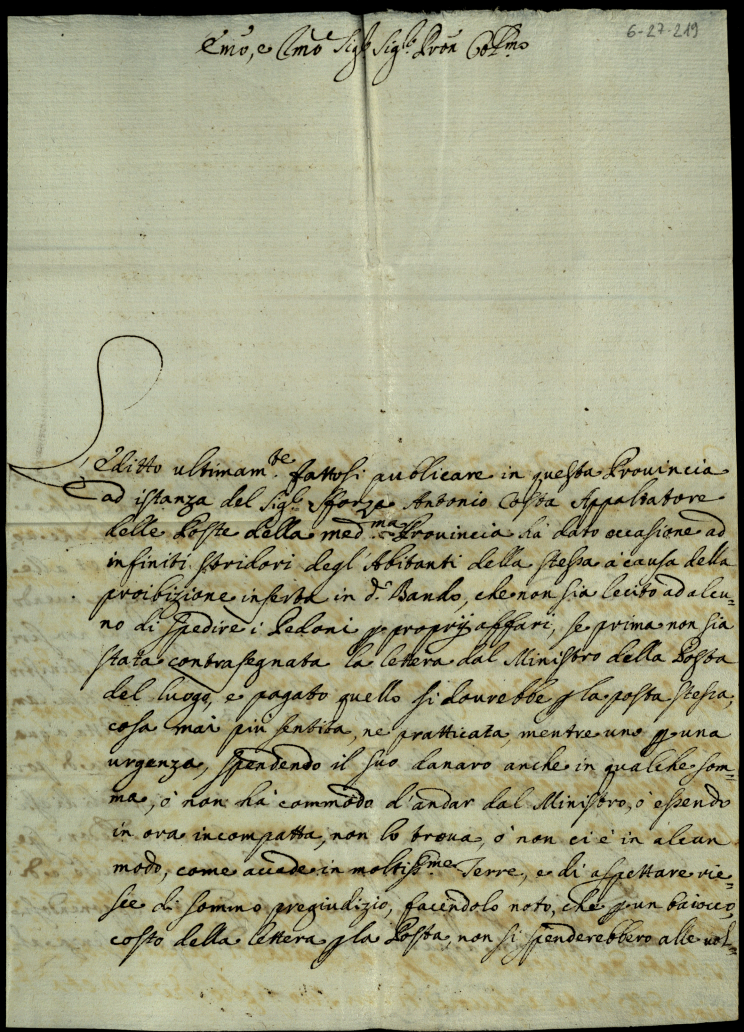 6-27-219
Em̃o, e Rm̃o Sig.r Sig.r Pron̄ Col.mo
L'Editto ultimam.te fattosi publicare in questa Prouincia
ad istanza del Sig.r Sforza Antonio Costa Appaltatore
delle Poste della med.ma Prouincia hà dato occasione ad
infiniti stridori degl'Abitanti della stessa à causa della
proibizione inserta in d.o Bando, che non sia lecito ad alcu-
no di spedire i Pedoni p proprij affari, se prima non sia
stata contrasegnata la lettera dal Ministro della Posta
del luogo, e pagato quello si dourebbe p la posta stessa,
cosa mai più sentita, ne pratticata, mentre uno p una
urgenza, spendendo il suo danaro anche in qualche som-
ma, ò non hà commodo d'andar dal Ministro, ò essendo
in ora incompatta, non lo troua, ò non ci è in alcun
modo, come accade in moltiss.me Terre, e di aspettare rie-
sce di sommo pregiudizio, facendolo noto, che p un baiocco,
costo della lettera p la Posta, non si spenderebbero alle uol-